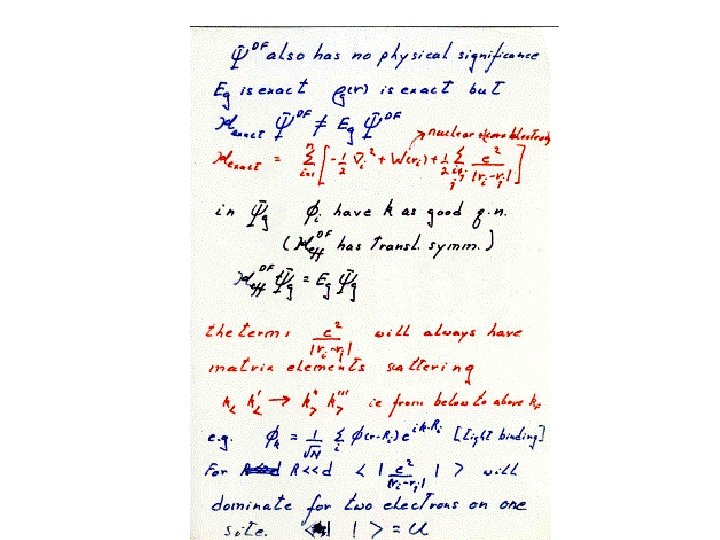 Ψ^DF also has no physical significance
E_g is exact ρ_g(r) is exact but
ℋ_exact Ψ^DF ≠ E_g Ψ^DF
nuclear + core electrons
ℋ_exact = Σ_{i=1}^{n} [ -1/2 ∇_i² + W(r_i) + 1/2 Σ_{i≠j} e²/|r_i-r_j| ]
in Ψ_g φ_i have k as good q.n.
(ℋ_eff^DF has transl. symm.)
ℋ_eff^DF Ψ_g = E_g Ψ_g
the terms e²/|r_i-r_j| will always have
matrix elements scattering
k_< k'_< → k''_> k'''_> ie from below to above k_F
e.g. φ_k = 1/√N Σ_i φ(r-R_i) e^{ik·R_i} [tight binding]
For R<<d < | e²/|r_i-r_j| | > will
dominate for two electrons on one
site. < | | > = U